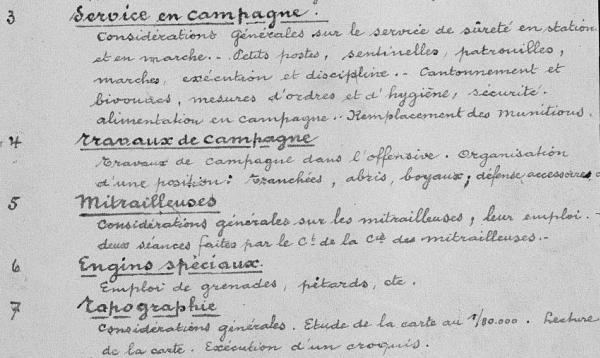 3 Service en campagne.
Considérations générales sur le service de sûreté en station
et en marche.- Petits postes, sentinelles, patrouilles,
marches, exécution et discipline.- Cantonnement et
bivouacs, mesures d'ordres et d'hygiène, sécurité.
alimentation en campagne.- Remplacement des munitions.
4 Travaux de campagne
Travaux de campagne dans l'offensive. Organisation
d'une position: Tranchées, abris, boyaux; défense accessoires
5 Mitrailleuses
Considérations générales sur les mitrailleuses, leur emploi.-
deux séances faites par le Ct de la Cie des mitrailleuses.-
6 Engins spéciaux.
Emploi de grenades, pétards, etc.
7 Topographie
Considérations générales. Etude de la carte au 1/80.000. Lecture
de la carte. Exécution d'un croquis.